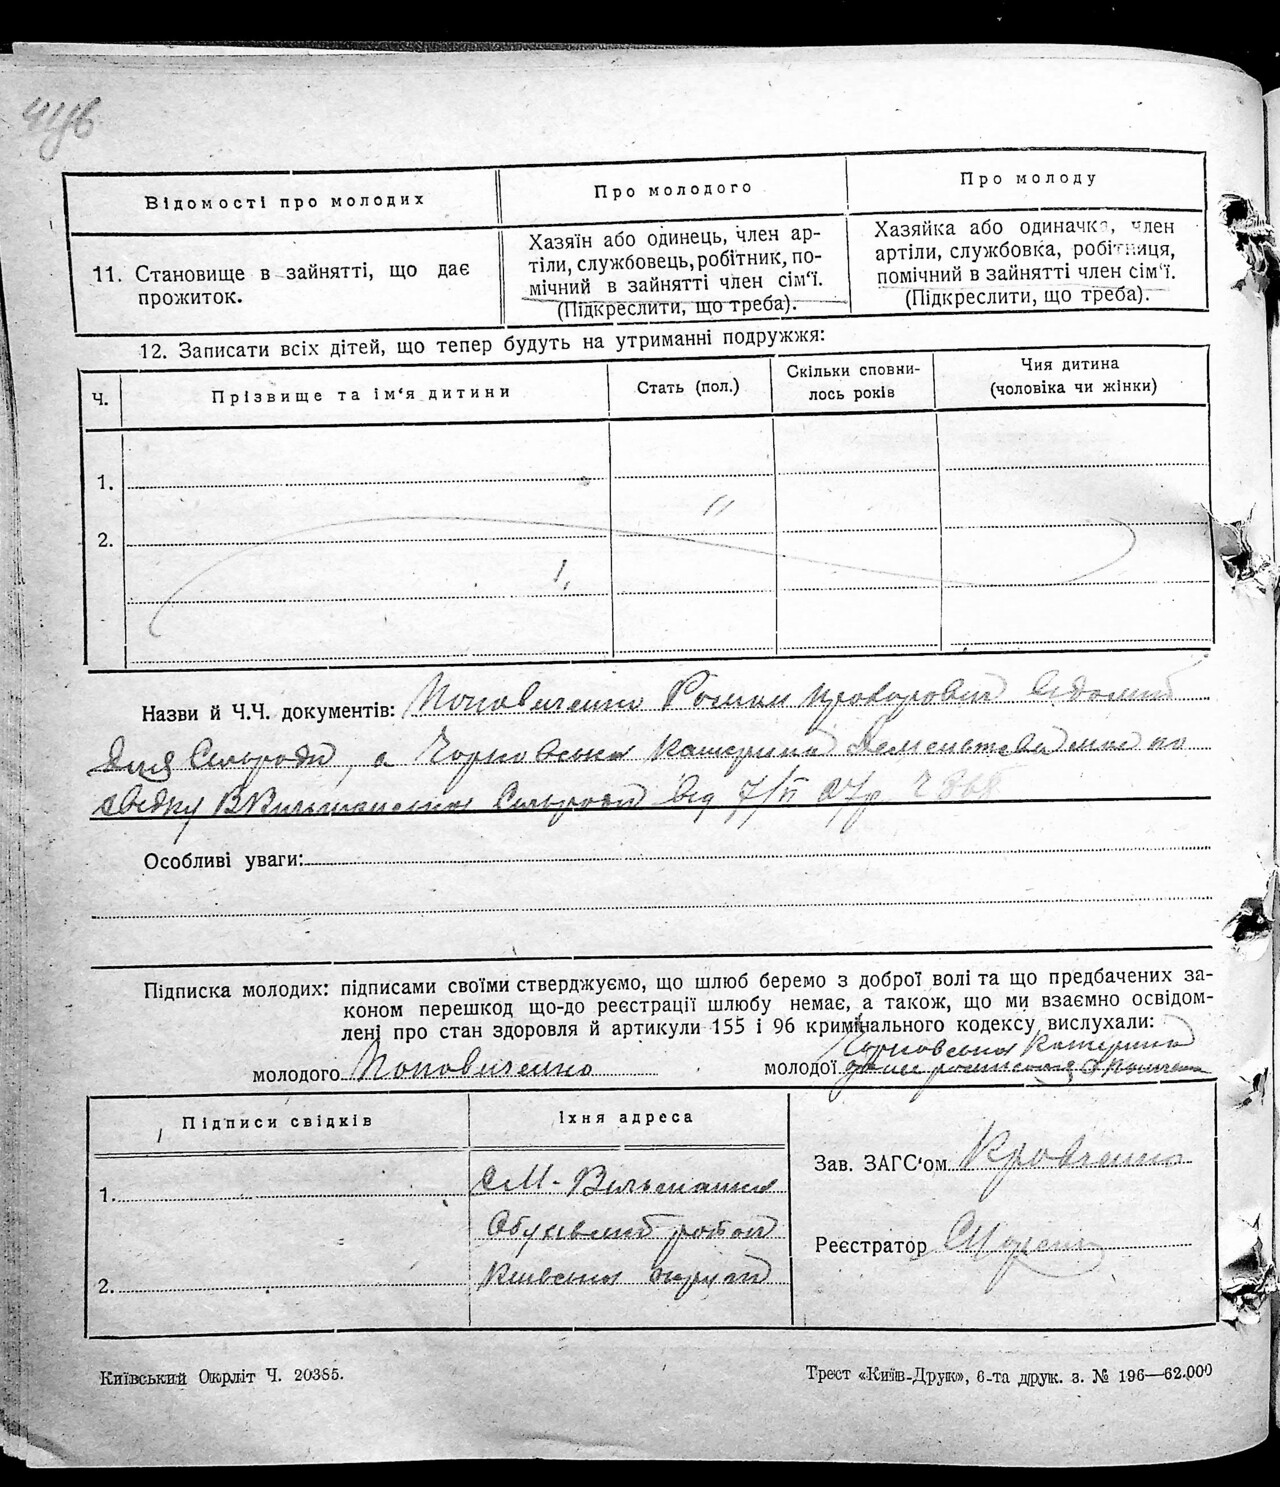 Відомості про молодих
Про молодого
Про молоду
11. Становище в зайнятті, що дає
прожиток.
Хазяїн або одинець, член ар-
тіли, службовець, робітник, по-
мічний в зайнятті член сім'ї.
(Підкреслити, що треба).
Хазяйка або одиначка, член
артіли, службовка, робітниця,
помічний в зайнятті член сім'ї.
(Підкреслити, що треба).
12. Записати всіх дітей, що тепер будуть на утриманні подружжя:
Ч.
Прізвище та ім'я дитини
Стать (пол.)
Скільки сповни-
лось років
Чия дитина
(чоловіка чи жінки)
1.
2.
Назви й Ч.Ч. документів: Поповиченко Роман Прохорович відомий
для Сільради, а Чорновська Катерина має по
свідку Сільради від 7/II 27р.
Особливі уваги:
Підписка молодих: підписами своїми стверджуємо, що шлюб беремо з доброї волі та що предбачених за-
коном перешкод що-до реєстрації шлюбу немає, а також, що ми взаємно освідом-
лені про стан здоровля й артикули 155 і 96 кримінального кодексу вислухали:
молодого Поповиченко
молодої Чорновська Катерина
Підписи свідків
Їхня адреса
1.
с М-Вільшанка
Обухівский район
2.
Київська округа
Зав. ЗАГС'ом Кравченко
Реєстратор
Київський Окрліт Ч. 20385.
Трест «Київ-Друк», 6-та друк. з. № 196—62.000